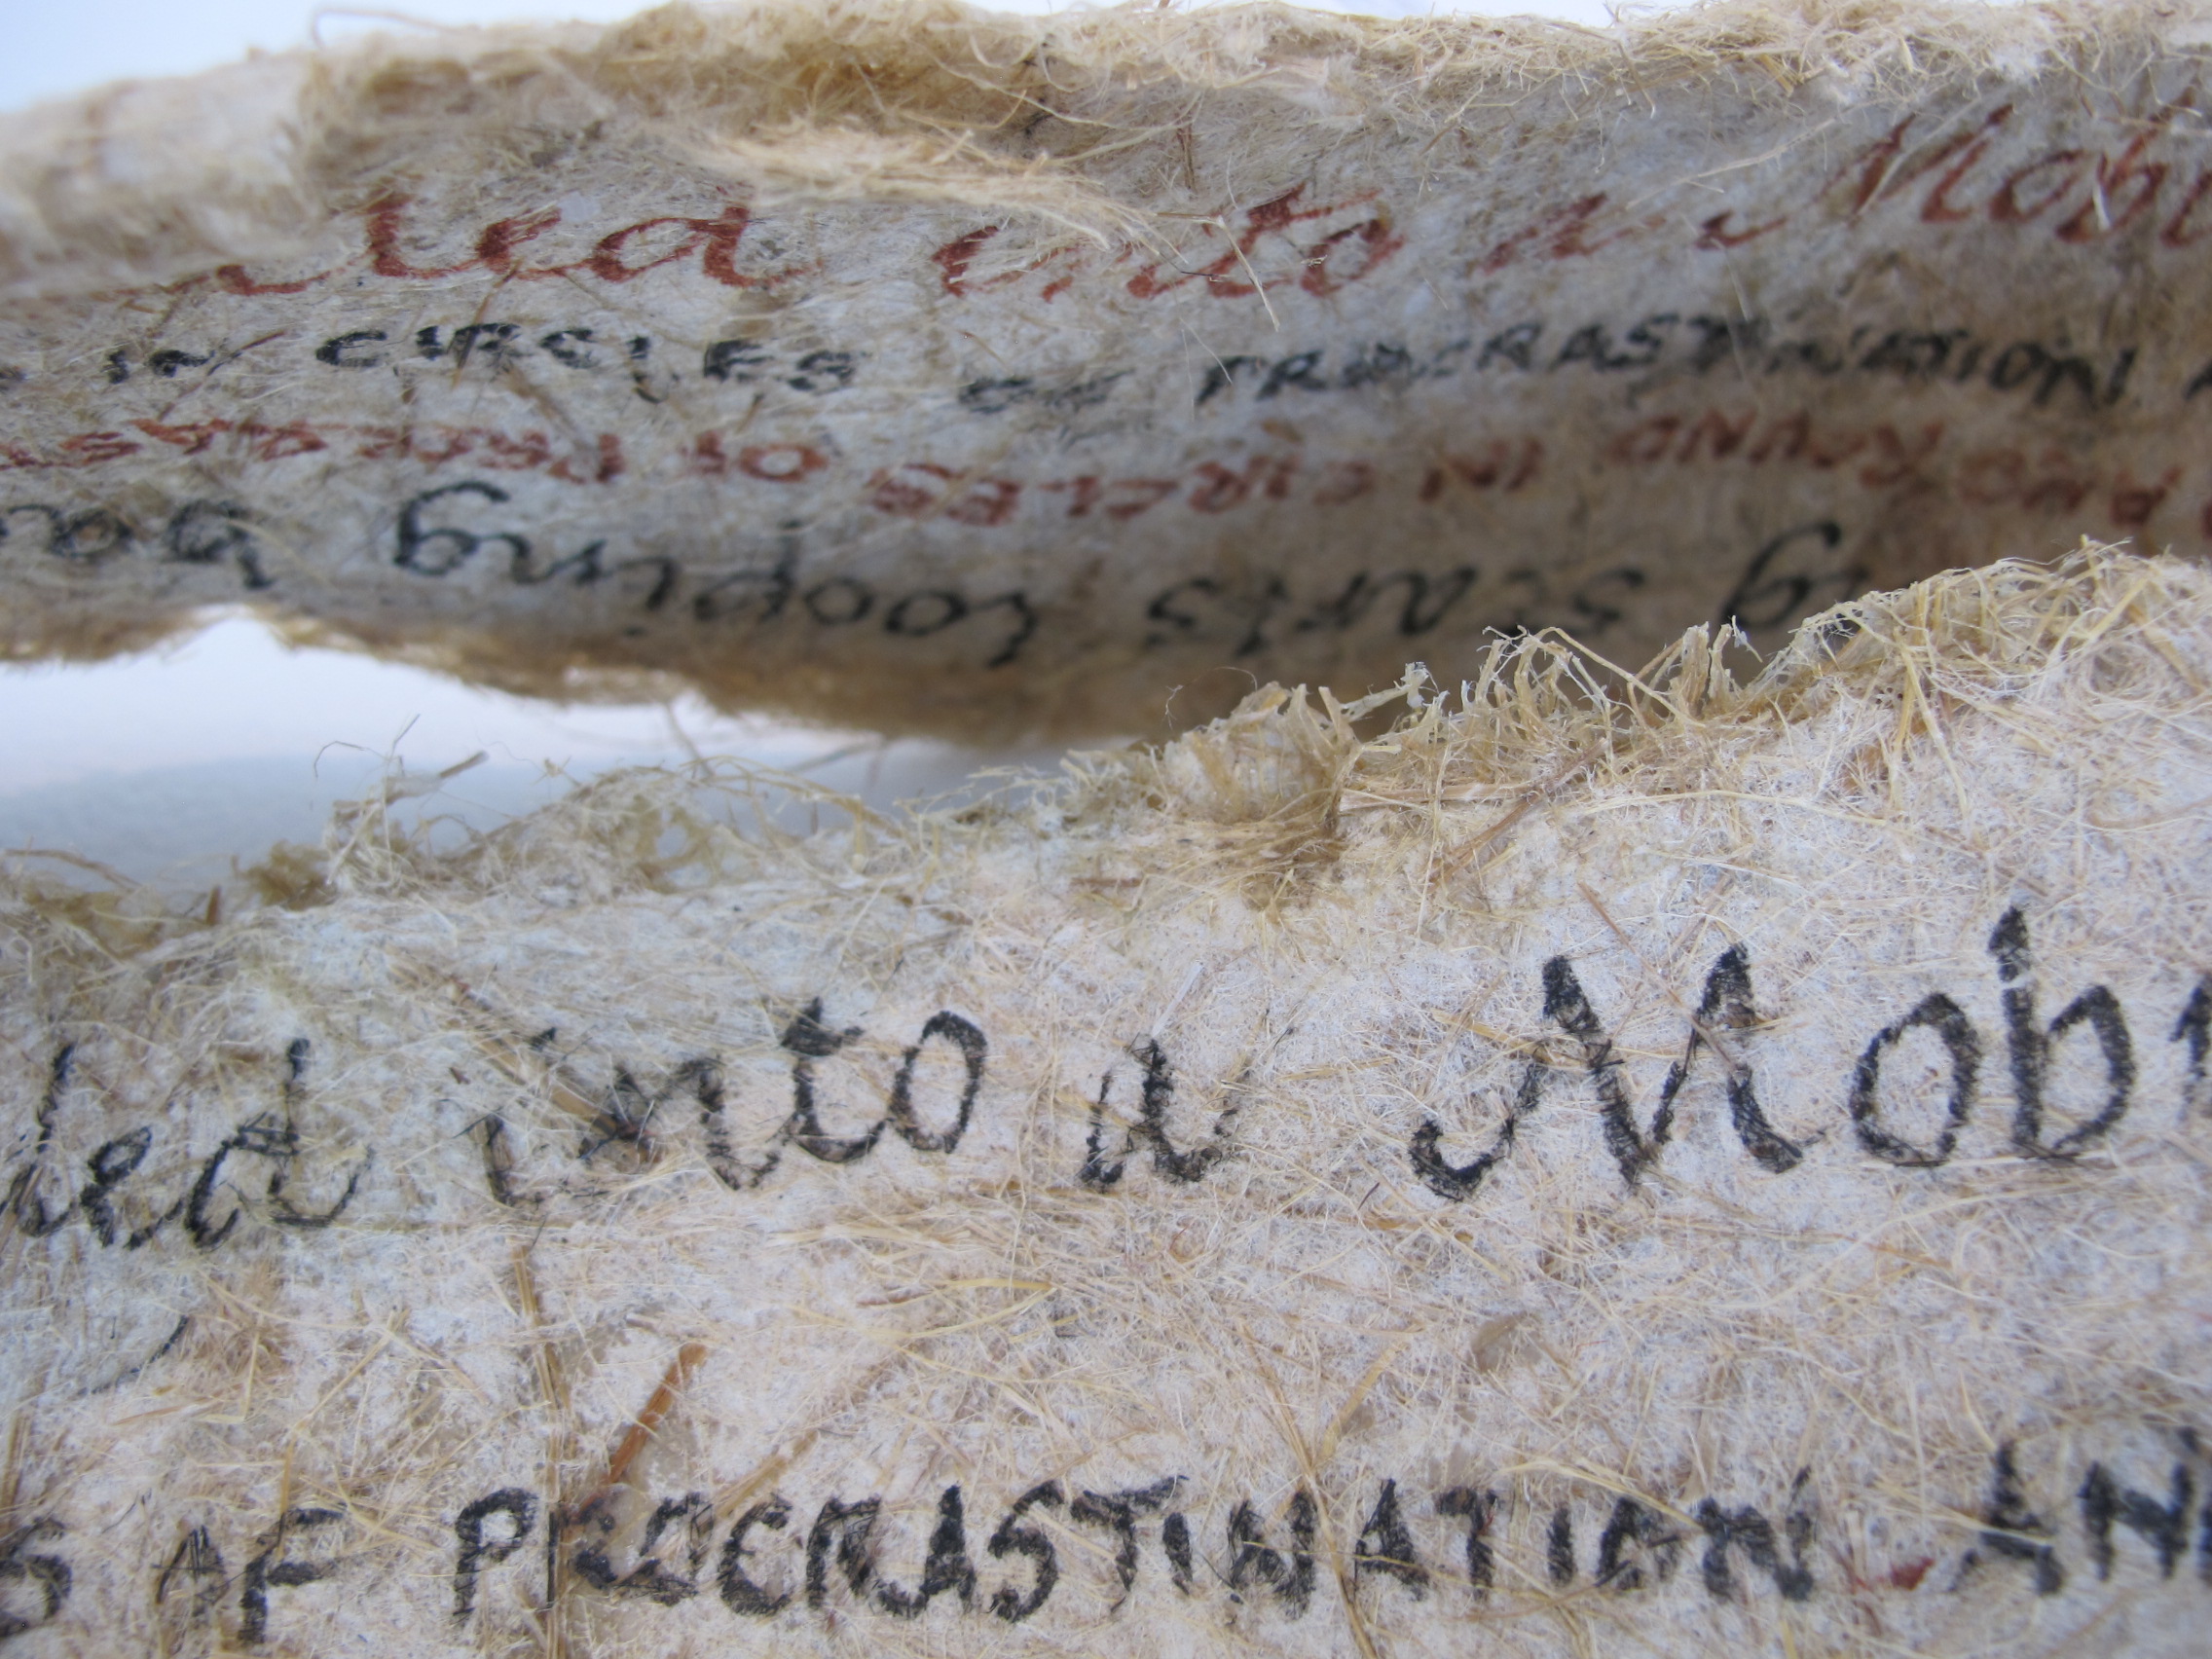 led into a Mobi
IN CIRCLES OF PROCRASTINATION
AND ROUND IN CIRCLES OF PROCRAST
scarfs looping
led into a Mobi
S OF PROCRASTINATION AN